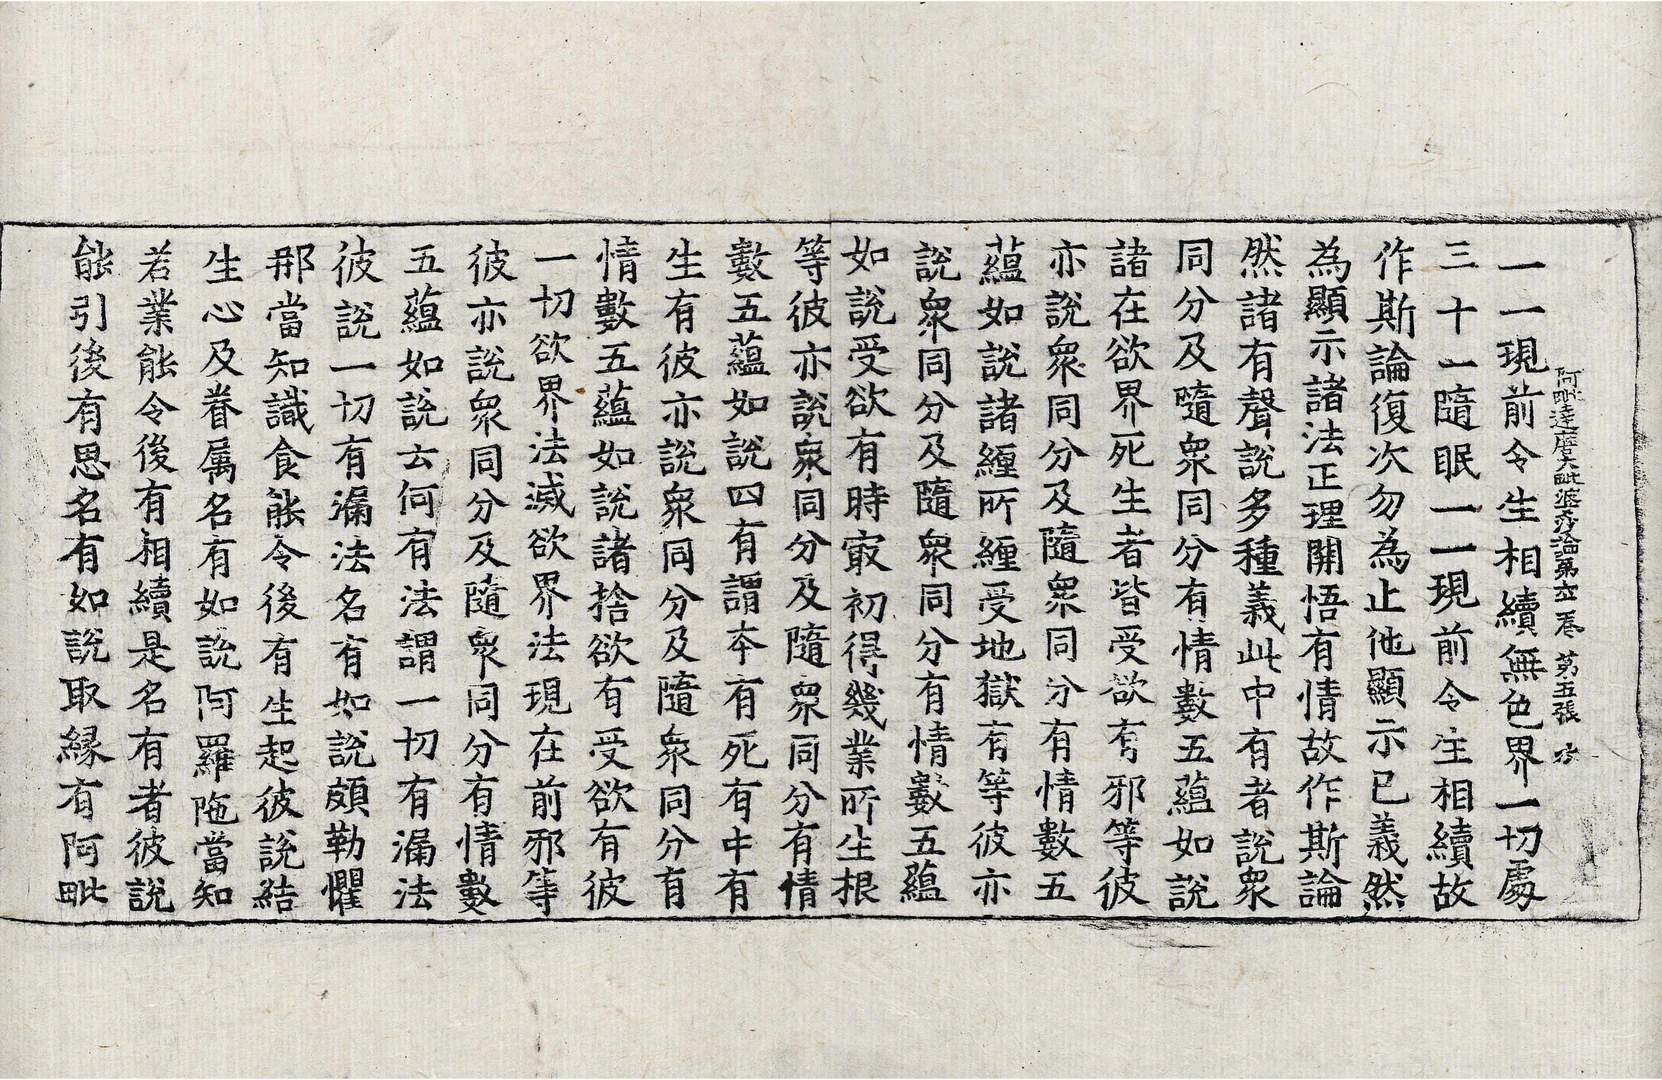 阿毗達磨大毗婆沙論第六十卷　第五張
一一現前令生相續無色界一切處
三十一隨眠一一現前令生相續故
作斯論復次勿為止他顯示已義然
為顯示諸法正理開悟有情故作斯論
然諸有聲說多種義此中有者說衆
同分及隨衆同分有情數五蘊如說
諸在欲界死生者皆受欲有邪等彼
亦說衆同分及隨衆同分有情數五
蘊如說諸纏所纏受地獄有等彼亦
說衆同分及隨衆同分有情數五蘊
如說受欲有時㝡初得幾業所生根
等彼亦說衆同分及隨衆同分有情
數五蘊如說四有謂本有死有中有
生有彼亦說衆同分及隨衆同分有
情數五蘊如說諸捨欲有受欲有彼
一切欲界法滅欲界法現在前邪等
彼亦說衆同分及隨衆同分有情數
五蘊如說云何有法謂一切有漏法
彼說一切有漏法名有如說頗勒懼
那當知識食能令後有生起彼說結
生心及眷属名有如說阿羅陁當知
若業能令後有相續是名有者彼說
能引後有思名有如說取緣有阿毗